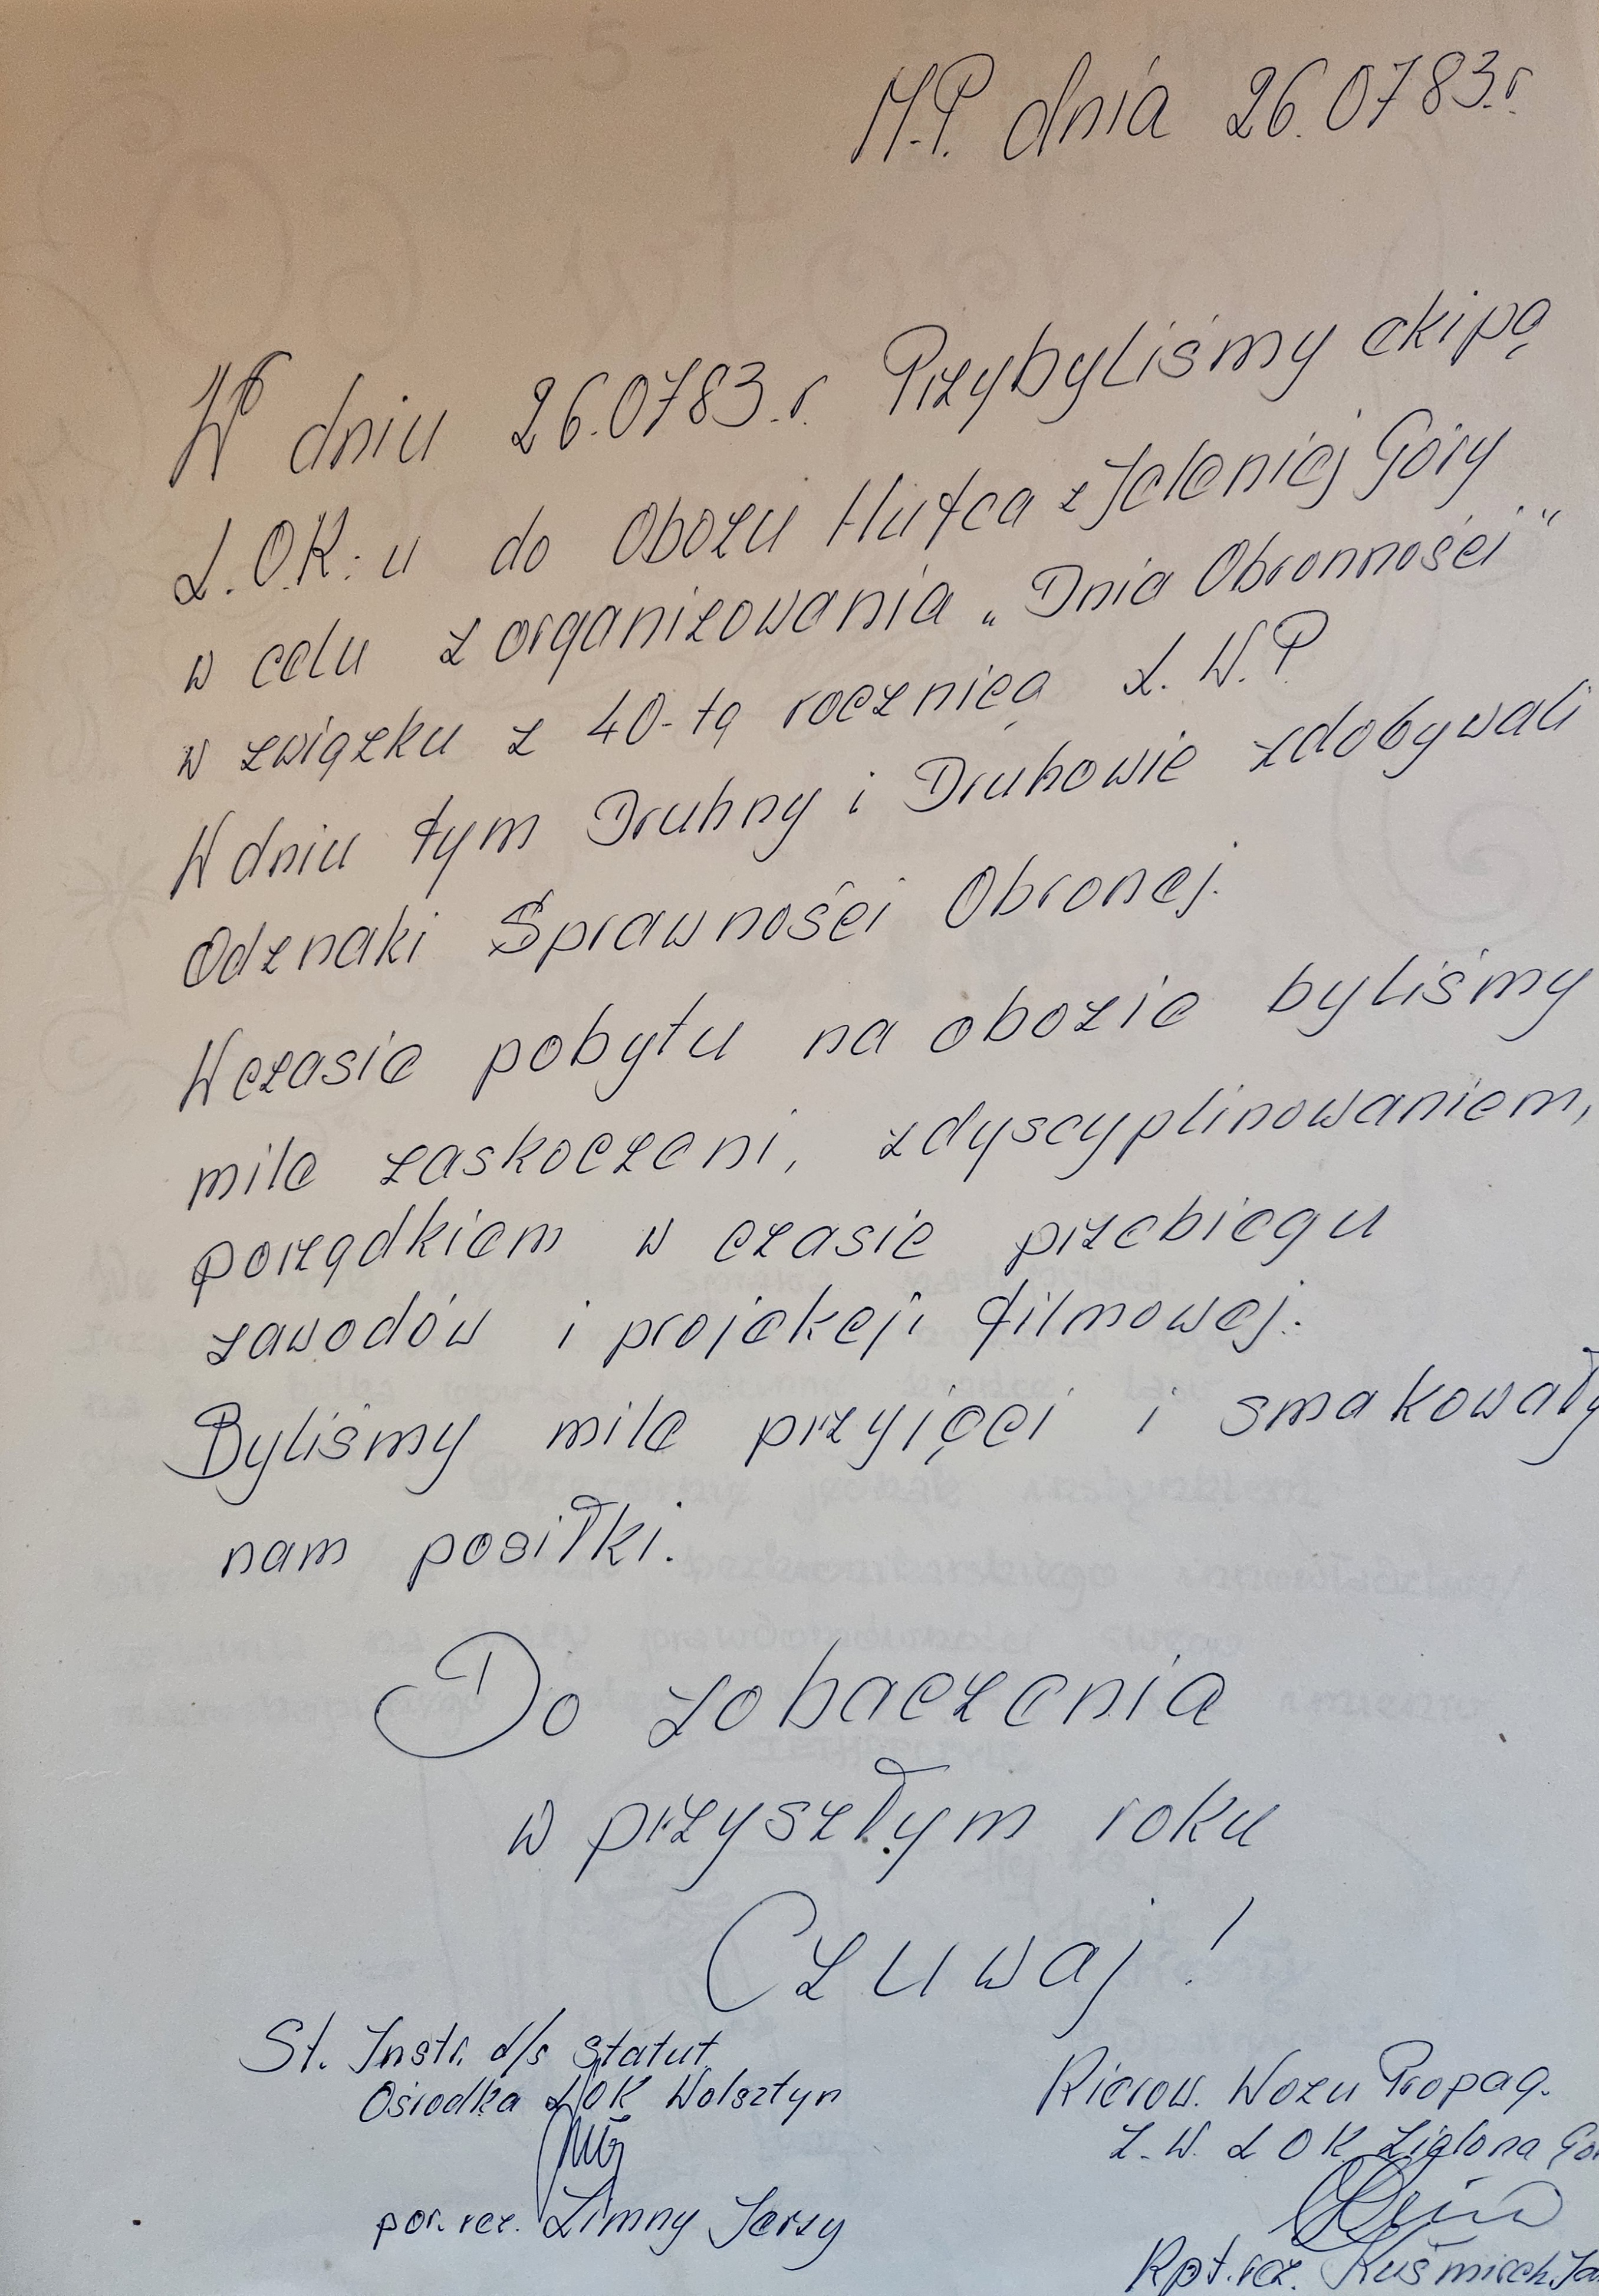 M.P. dnia 26.07 83.r
W dniu 26.07 83.r. Przybyliśmy ekipą
L.O.K.:u do Obozu Hufca z Jeleniej Góry
w celu zorganizowania „Dnia Obronności”
w związku z 40-tą rocznicą L.W.P
W dniu tym Druhny i Druhowie zdobywali
Odznaki Sprawności Obronej.
W czasie pobytu na obozie byliśmy
mile zaskoczeni, zdyscyplinowaniem,
porządkiem w czasie przebiegu
zawodów i projekcji filmowej.
Byliśmy mile przyjęci i smakowały
nam posiłki.
Do zobaczenia
w przyszłym roku
Czuwaj!
St. Instr. d/s Statut.
Ośrodka LOK Wolsztyn
por. rez. Zimny Jerzy
Kierow. Wozu Propag.
Z.W. LOK Zielona Gó
Kpt. rez.